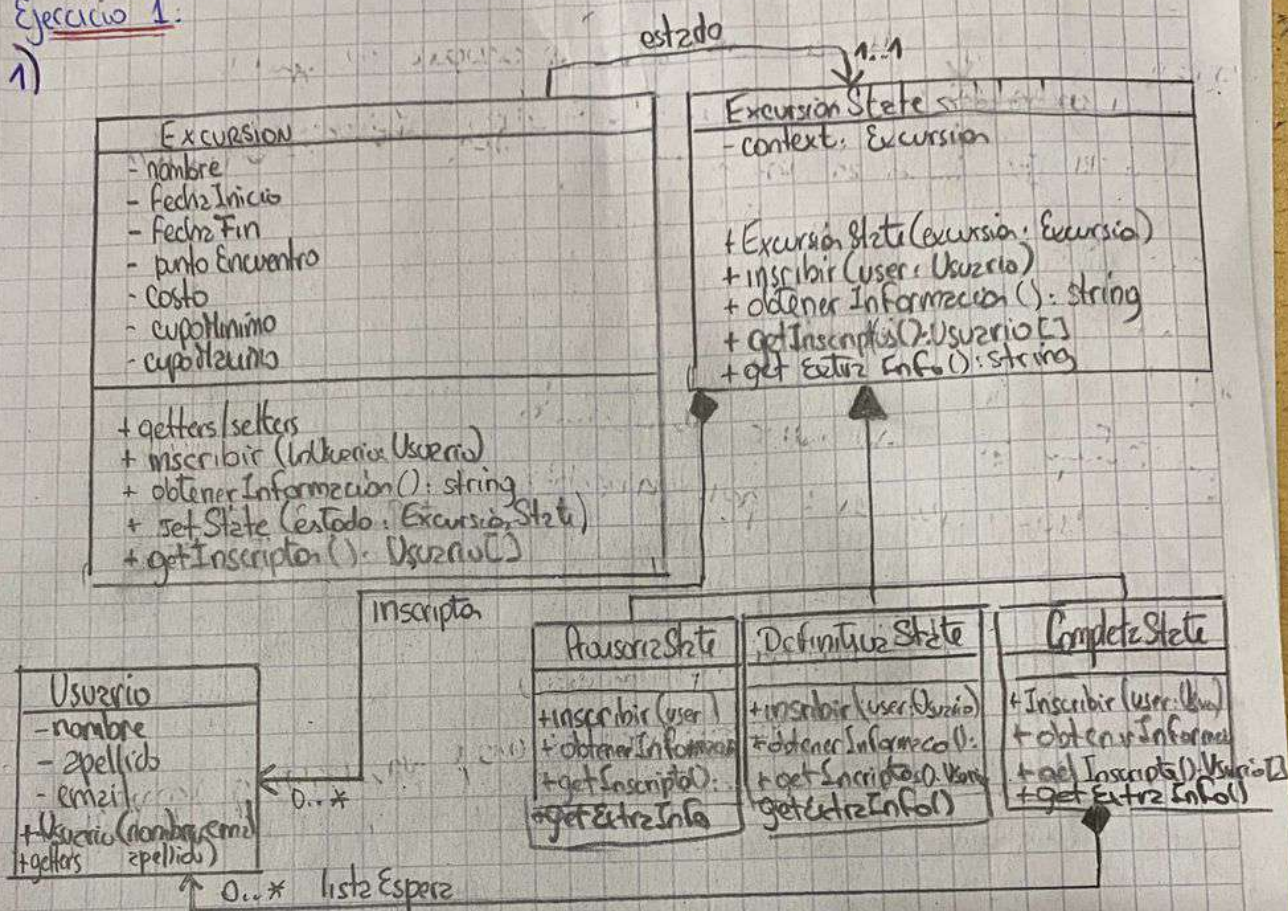 Ejercicio 1:
1)
estado
1..1
EXCURSION
- nombre
- fechaInicio
- fechaFin
- puntoEncuentro
- costo
- cupoMinimo
- cupoMaximo
+ getters/setters
+ inscribir (Usuario)
+ obtenerInformacion(): string
+ setState (estado: ExcursionState)
+ getInscriptos(): Usuario[]
ExcursionState
- context: Excursion
+ ExcursionState(excursion: Excursio)
+ inscribir (user: Usuario)
+ obtenerInformacion(): string
+ getInscriptos(): Usuario[]
+ get Extra Info(): string
inscriptos
ProvisoriaState
+ inscribir (user)
+ obtenerInformacion
+ getInscripto():
+ getExtraInfo
DefinitivaState
+ inscribir (user: Usuario)
+ obtenerInformaco():
+ getIncriptos(): Usuario
getExtraInfo()
CompletaState
+ Inscribir (user: Usua)
+ obtenerInformac
+ get Inscripto(): Usuario[]
+ get Extra Info()
Usuario
- nombre
- apellido
- email
+ Usuario (nombre, email
+ getters apellido)
0..*
0..* listaEspera